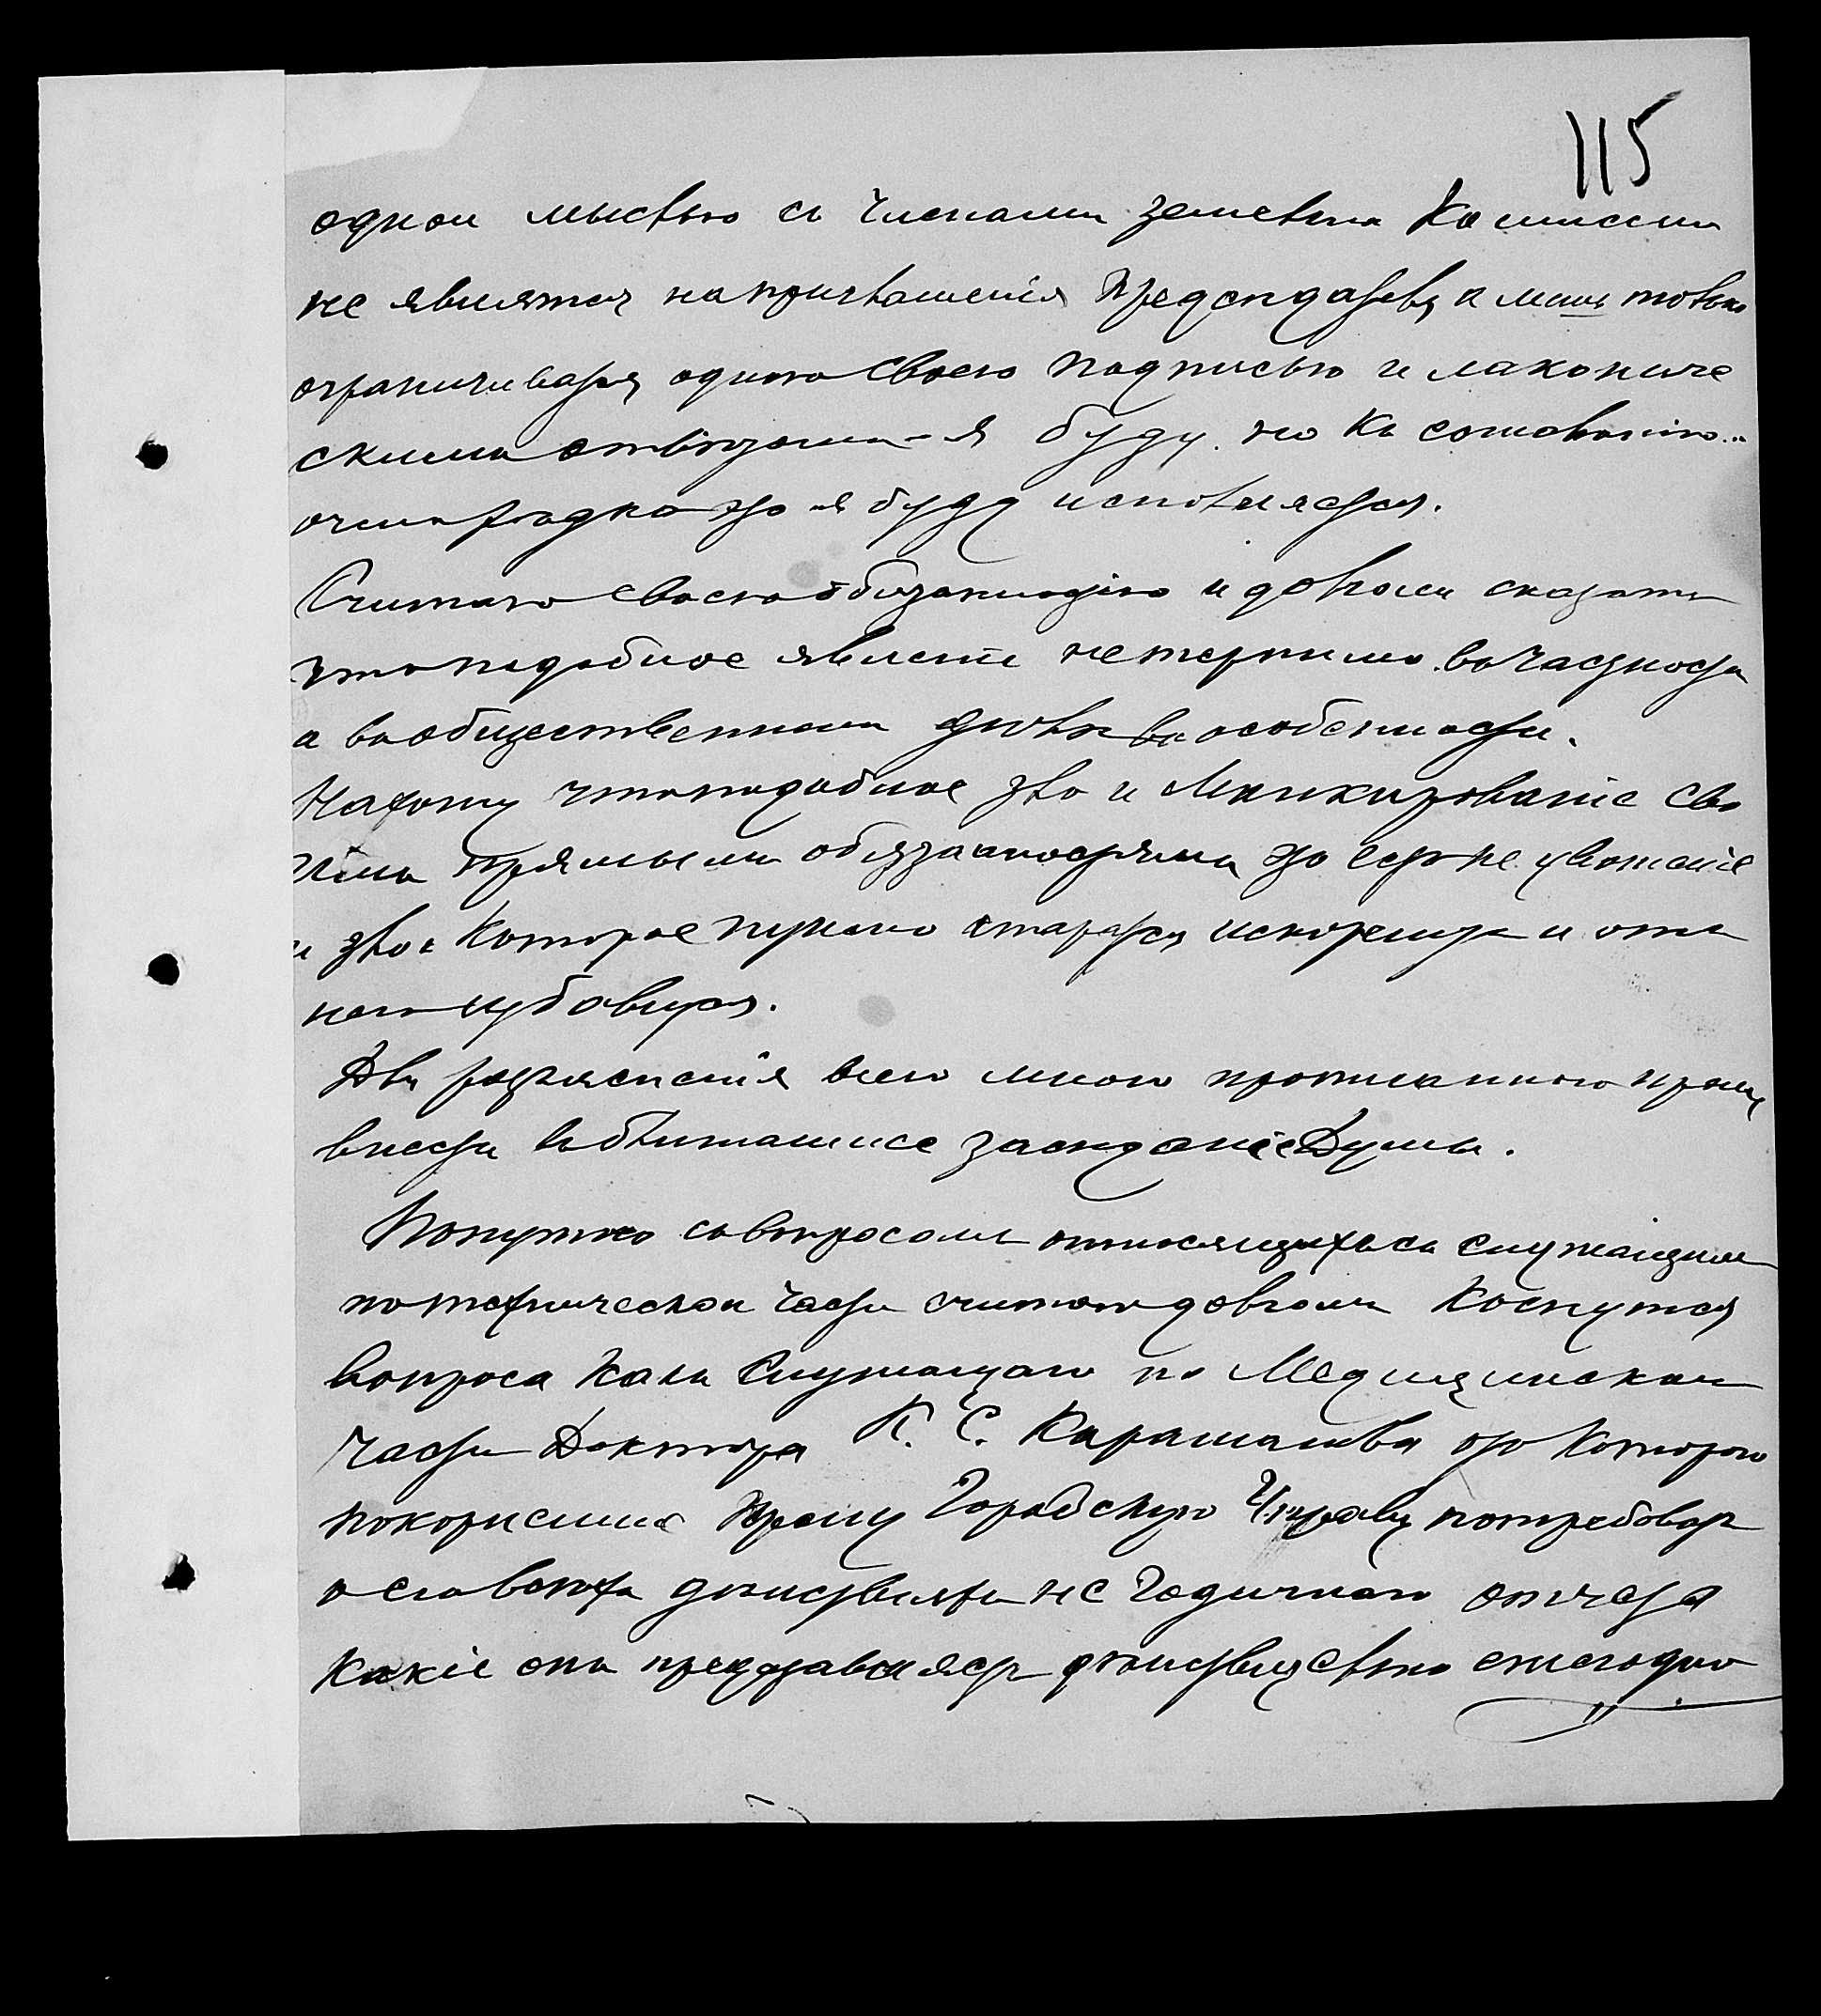 115
одной мыслью съ Членами земельн. Комиссіи
не являтся на приглашенія Предсѣдателя, а лишь только
ограничиватся одною своею подписью и лакониче
скимъ отвѣтомъ - я буду. но къ сожалѣнію...
очень рѣдко это я буду исполняется.
Считаю своею обязанностію и долгомъ сказать
что подобное явленіе не терпимо въ частности
а въ общественномъ дѣлѣ въ особенности.
Нахожу что подобное зло и Манкированіе сво
ими прямыми обязанностями, это есть не уваженіе
и зло, которое нужно старатся искоренить и отъ
него избавится.
Для разъясненія всего мною прописаннаго прошу
внести въ ближайшее засѣданіе Думы.
Попутно съ вопросомъ относящихся къ служащимъ
по технической части считаю долгомъ коснутся
вопроса какъ служащаго по Медицинской
части Доктора К. С. Карашаева отъ котораго
покорнейше прошу Городскую Управу потребовать
о его дѣйствіяхъ не годичнаго отчета
какіе онъ представляетъ ежегодно